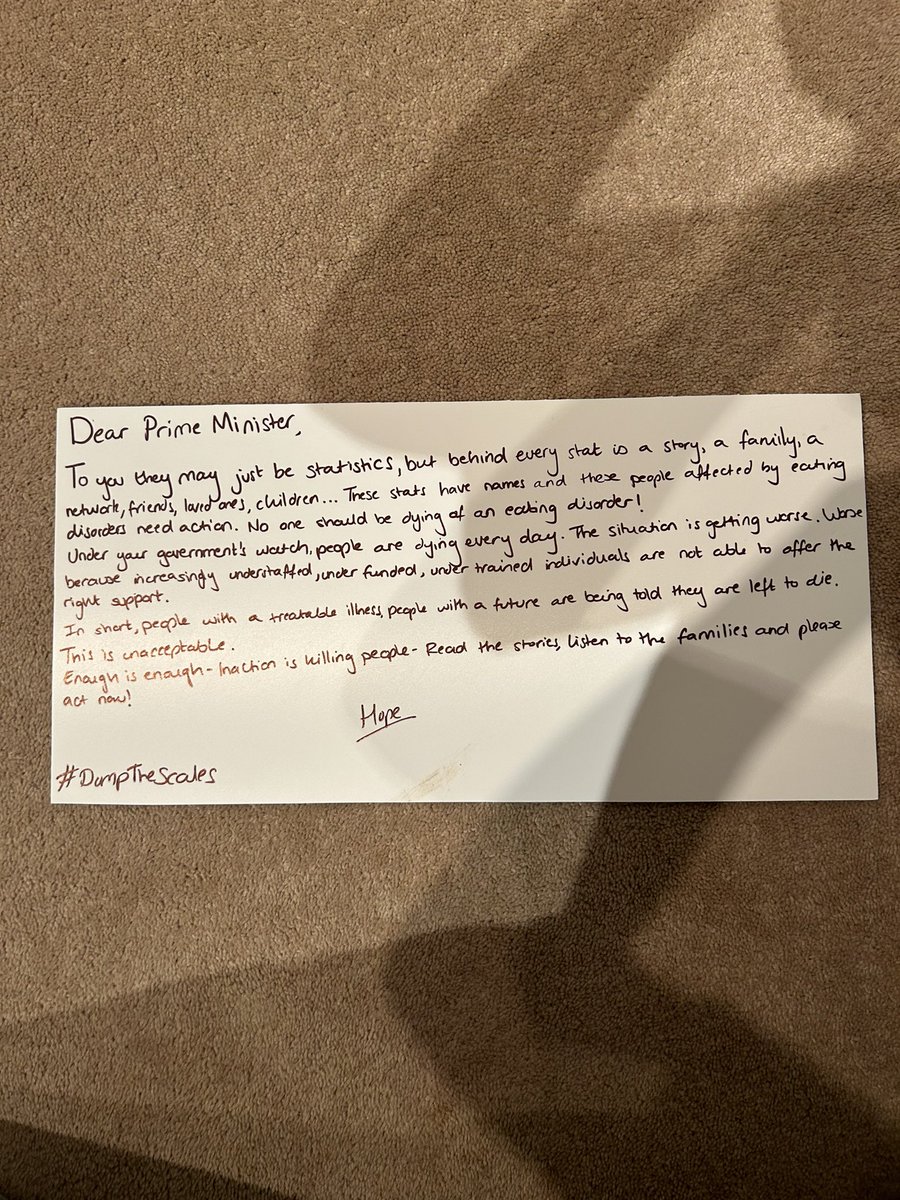 Dear Prime Minister,
To you they may just be statistics, but behind every stat is a story, a family, a
network, friends, loved ones, children... These stats have names and these people affected by eating
disorders need action. No one should be dying of an eating disorder!
Under your government's watch, people are dying every day. The situation is getting worse. Worse
because increasingly understaffed, under funded, under trained individuals are not able to offer the
right support.
In short, people with a treatable illness, people with a future are being told they are left to die.
This is unacceptable.
Enough is enough - Inaction is killing people - Read the stories, listen to the families and please
act now!
Hope
#DumpTheScales